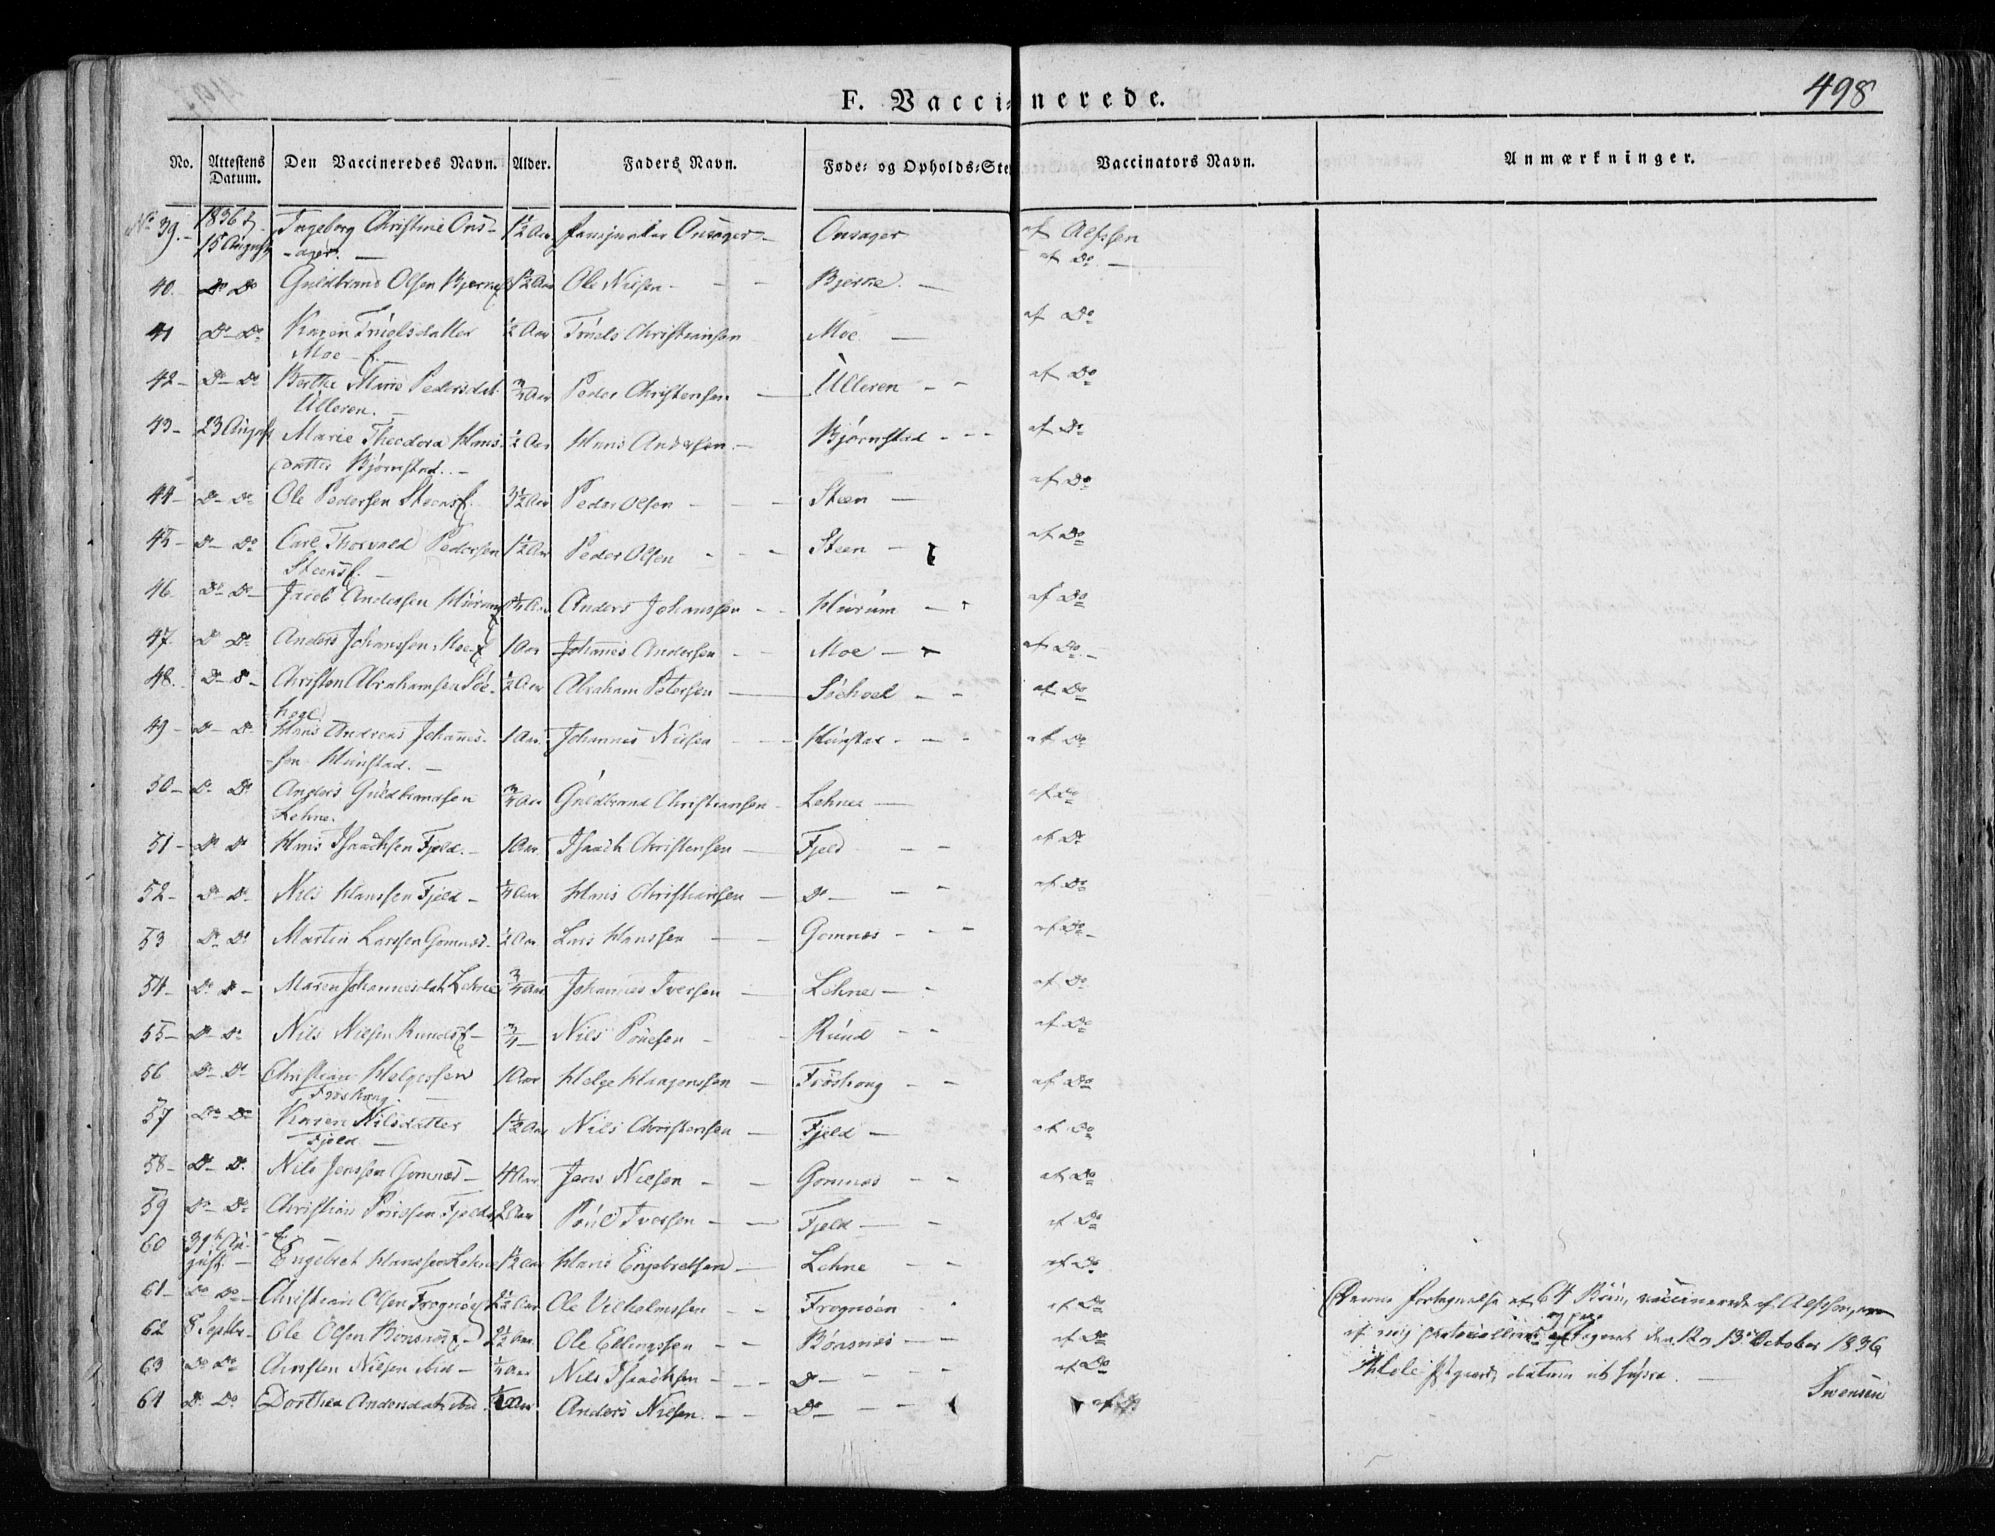 498
F. Vaccinerede.
No. Attestens Datum. Den Vaccineredes Navn. Alder. Faders Navn. Føde- og Opholds-Ste Vaccinators Navn. Anmærkninger.
No 39. 1836 d. 15 August Ingeborg Christine Ons-ager. 1½ Aar Onsager Onsager af Alfsen
40. Do Do Guldbrand Olsen Bjerke 1½ Aar Ole Nielsen Bjerke. af Do
41 Do Do Karen Truelsdatter Moe ½ Aar Truels Christiansen Moe af Do
42 Do Do Berthe Marie Pedersdat. Ulleren. ¾ Aar Peder Christensen Ulleren af Do
43 23 August Marie Theodora Hans-datter Bjørnstad. ½ Aar Hans Andersen Bjørnstad af Do
44 Do Do Ole Pedersen Steens 3½ Aar Peder Olsen Steen af Do
45 Do Do Carl Thorvald Pedersen Steens 1½ Aar Peder Olsen Steen af Do
46. Do Do Jacob Andersen Hurum Aar Anders Johanssen Hurum af Do
47. Do Do Anders Johanssen Moe 1 Aar Johannes Andersen Moe af Do
48. Do Do Christen Abrahamsen Søe-hoel ½ Aar Abraham Petersen Søehoel af Do
49 Do Do Hans Andreas Johannes-sen Hunstad. 1 Aar Johannes Nilsen Hunstad af Do
50 Do Do Anders Guldbrandsen Lehne. ¾ Aar Guldbrand Christiansen Lehne af Do
51 Do Do Hans Isaachsen Fjeld. 1 Aar Isaach Christensen Fjeld af Do
52 Do Do Nils Hanssen Fjeld ¼ Aar Hans Christiansen Do af Do
53 Do Do Martin Larssen Gomnæs ½ Aar Lars Hanssen Gomnæs af Do
54 Do Do Maren Johannesdat. Lehne ¾ Aar Johannes Iversen Lehne af Do
55 Do Do Nils Nielsen Runds ¾ Nils Povelsen Rund af Do
56 Do Do Christian Helgessen Frøshaug 1 Aar Helge Haagenssen Frøshoug af Do
57 Do Do Karen Nilsdatter Fjeld 1½ Aar Nils Christensen Fjeld af Do
58 Do Do Nils Jenssen Gomnæs 4 Aar Jens Nielsen Gomnæs af Do
59 Do Do Christian Poulssen Fjeld 2 Aar Poul Iversen Fjeld af Do
60 31te August Engebret Hanssen Lehne 1½ Aar Hans Engebretsen Lehne af Do
61 Do Do Christian Olsen Frognøe 2½ Aar Ole Vilhelmssen Frognøen af Do
62 8 Septbr Ole Olsen Bønsnæs 2½ Aar Ole Ellingssen Bønsnæs af Do
63 Do Do Christen Nielsen ibid ¼ Aar Nils Isaachsen Do af Do
64 Do Do Dorthea Andersdatr. ibid ½ Aar Anders Nielsen. Do af Do
Denne Fortegnelse af 64 Børn, vaccinerede af Alfsen, er
af mig protocolleret den 12 og 13 October 1836
Hole Pstgaard, datum ut supra.
Svensen